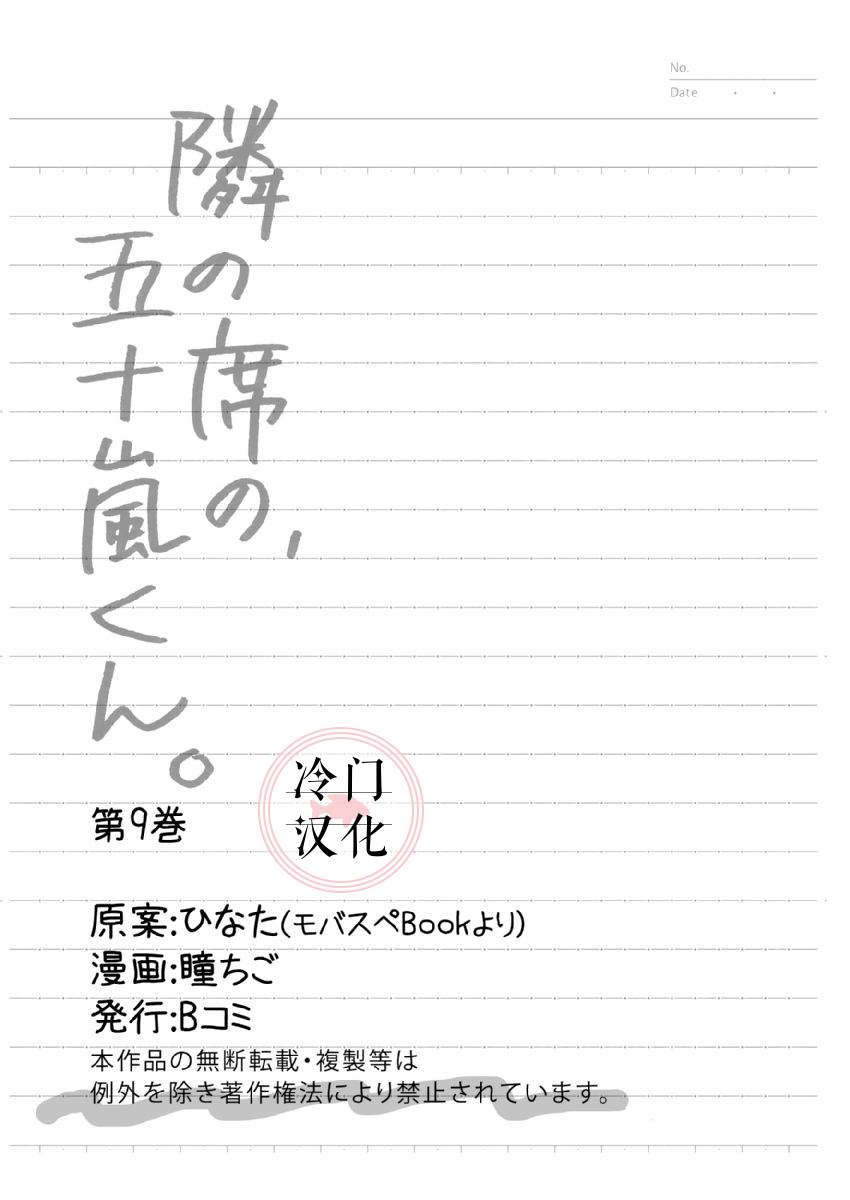 No.
Date
隣の席の、
五十嵐くん。
第9巻
冷门
汉化
原案:ひなた(モバスペBookより)
漫画:瞳ちご
発行:Bコミ
本作品の無断転載・複製等は
例外を除き著作権法により禁止されています。